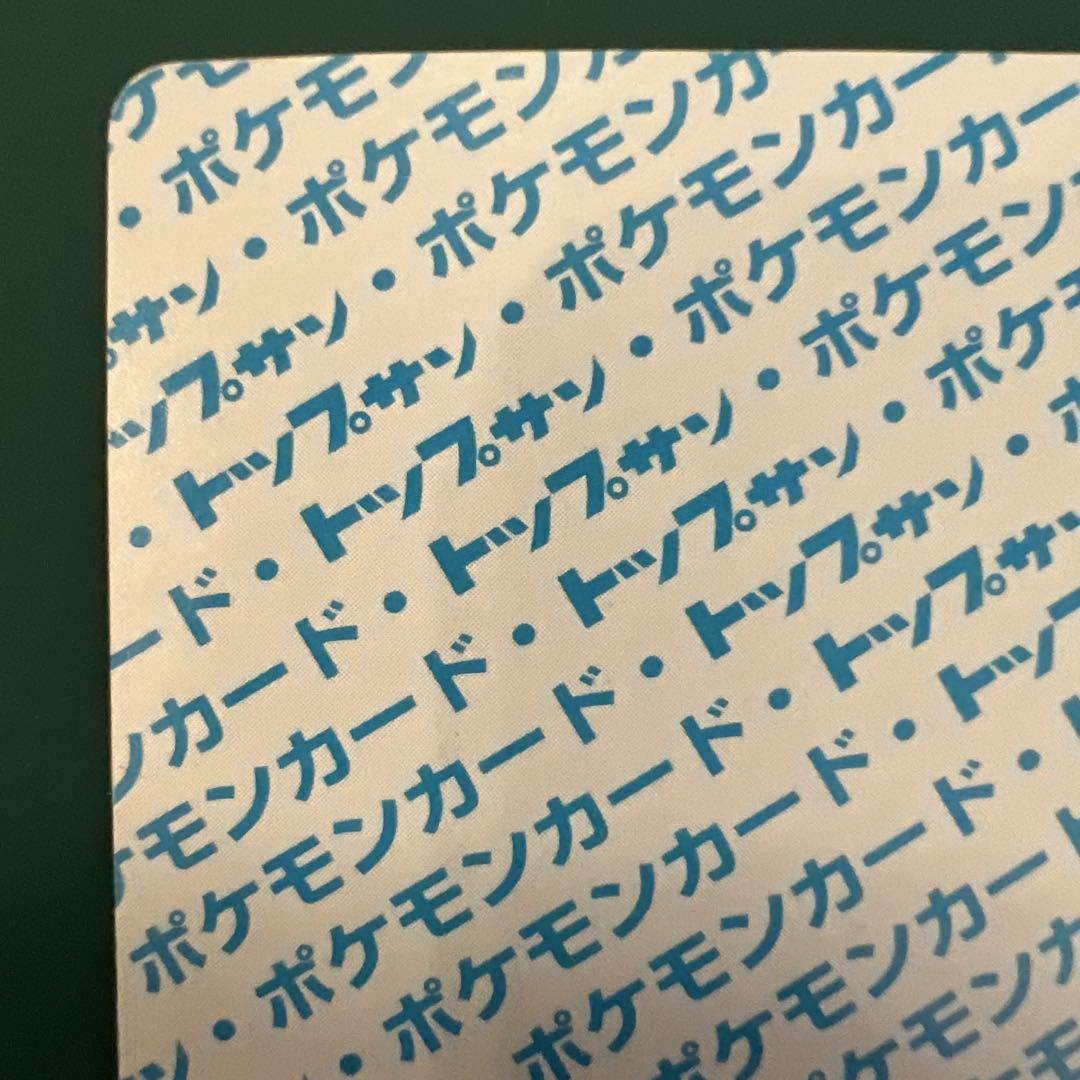 ケモ
・ポケモン
サン・ポケモンカ
ップサン・ポケモンカ
・トップサン・ポケモンカー
ード・トップサン・ポケモンカー
ンカード・トップサン・ポケモン
ケモンカード・トップサン・ポケモ
ポケモンカード・トップサン・ポ
ン・ポケモンカード・トップサン
・ポケモンカード・トッ
ポケモンカード・
ポケモンカー
ケモンカ
モ